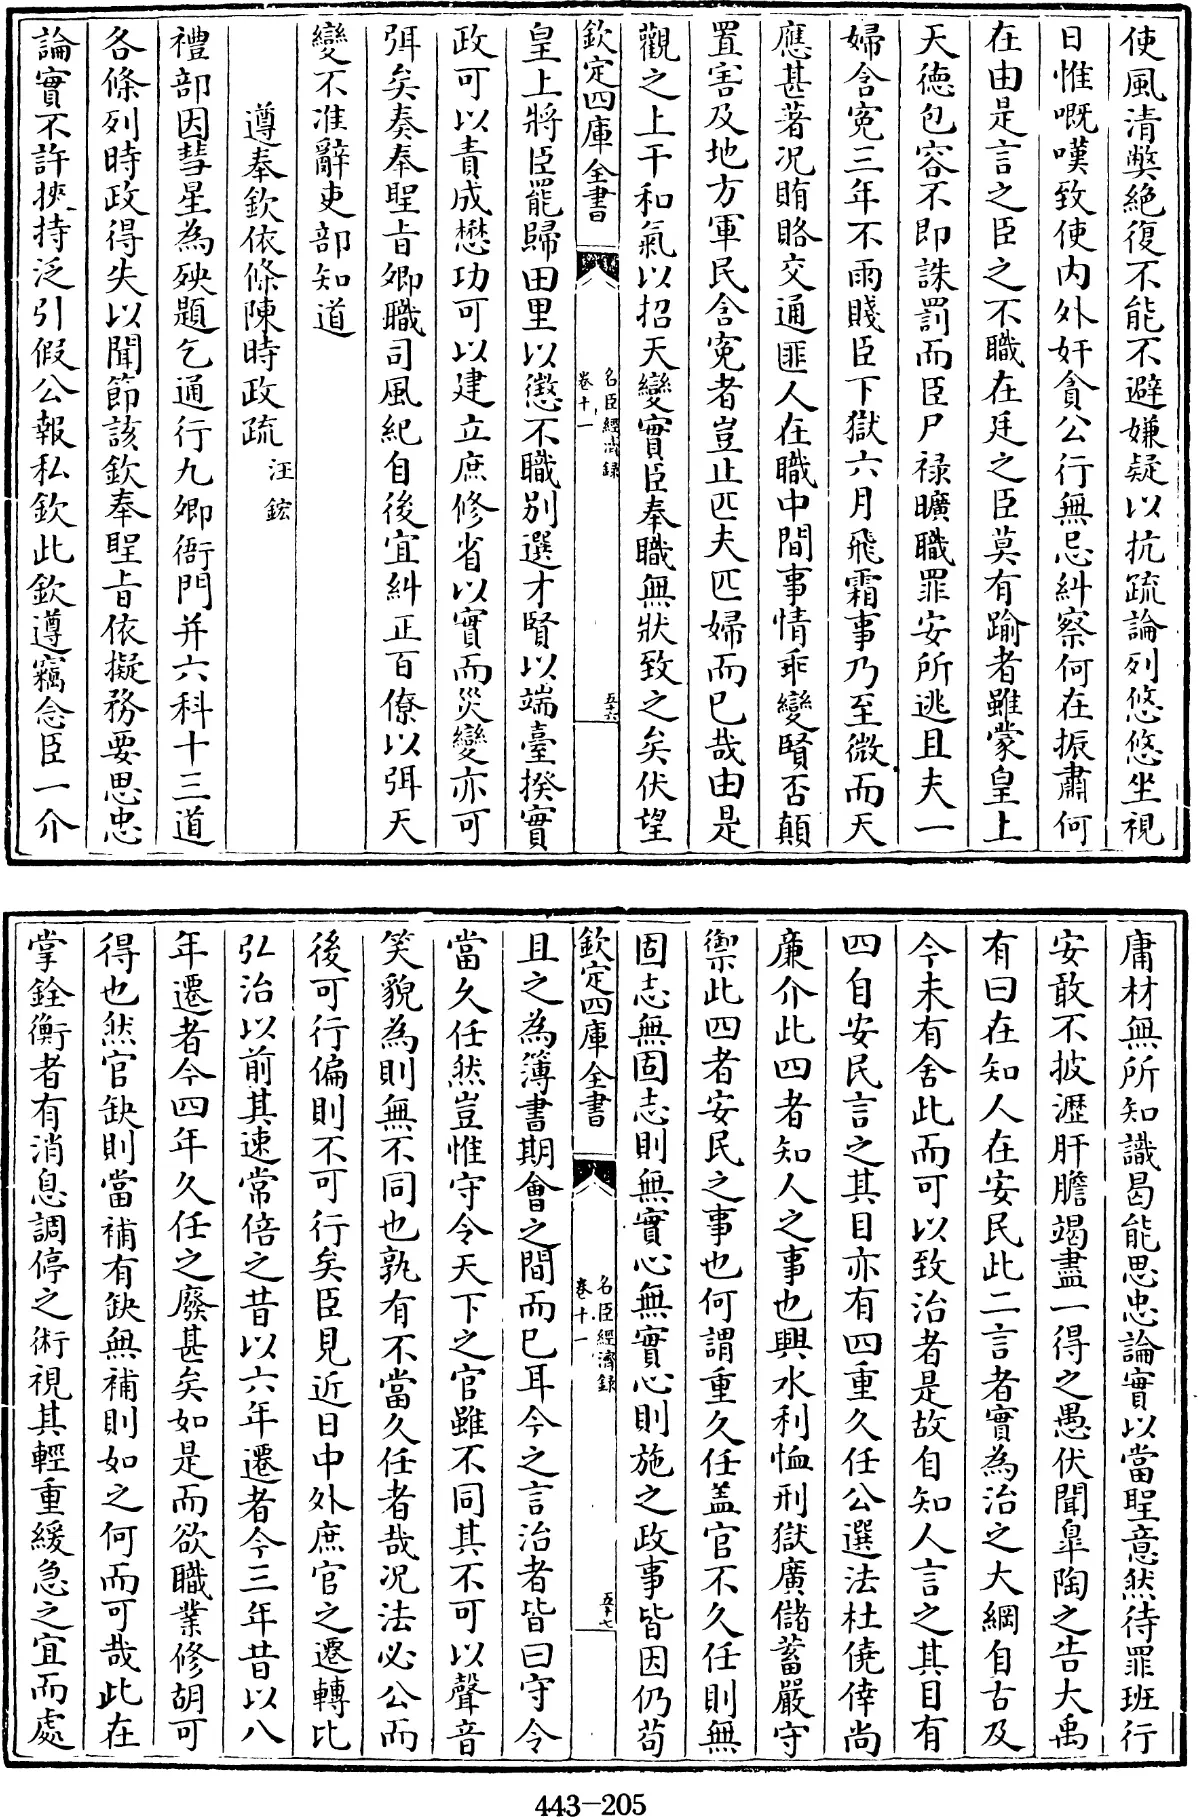 使風清弊絶復不能不避嫌疑以抗疏論列悠悠坐視
日惟嘅嘆致使内外奸貪公行無忌糾察何在振肅何
在由是言之臣之不職在廷之臣莫有踰者雖蒙皇上
天徳包容不即誅罰而臣尸禄曠職罪安所逃且夫一
婦含寃三年不雨賤臣下獄六月飛霜事乃至微而天
應甚著况賄賂交通匪人在職中間事情乖變賢否顛
置害及地方軍民含寃者豈止匹夫匹婦而已哉由是
觀之上干和氣以招天變實臣奉職無狀致之矣伏望
欽定四庫全書
名臣經濟録
卷十一
五十六
皇上將臣罷歸田里以懲不職别選才賢以端臺揆實
政可以責成懋功可以建立庶修省以實而災變亦可
弭矣奏奉聖旨卿職司風紀自後宜糾正百僚以弭天
變不准辭吏部知道
遵奉欽依條陳時政疏 汪鋐
禮部因彗星為殃題乞通行九卿衙門并六科十三道
各條列時政得失以聞節該欽奉聖旨依擬務要思忠
論實不許挾持泛引假公報私欽此欽遵竊念臣一介
庸材無所知識曷能思忠論實以當聖意然待罪班行
安敢不披瀝肝膽竭盡一得之愚伏聞臯陶之告大禹
有曰在知人在安民此二言者實為治之大綱自古及
今未有舍此而可以致治者是故自知人言之其目有
四自安民言之其目亦有四重久任公選法杜僥倖尚
廉介此四者知人之事也興水利恤刑獄廣儲蓄嚴守
禦此四者安民之事也何謂重久任盖官不久任則無
固志無固志則無實心無實心則施之政事皆因仍苟
欽定四庫全書
名臣經濟録
卷十一
五十七
且之為簿書期會之間而已耳今之言治者皆曰守令
當久任然豈惟守令天下之官雖不同其不可以聲音
笑貌為則無不同也孰有不當久任者哉况法必公而
後可行偏則不可行矣臣見近日中外庶官之遷轉比
弘治以前其速常倍之昔以六年遷者今三年昔以八
年遷者今四年久任之廢甚矣如是而欲職業修胡可
得也然官缺則當補有缺無補則如之何而可哉此在
掌銓衡者有消息調停之術視其輕重緩急之宜而處
443-205